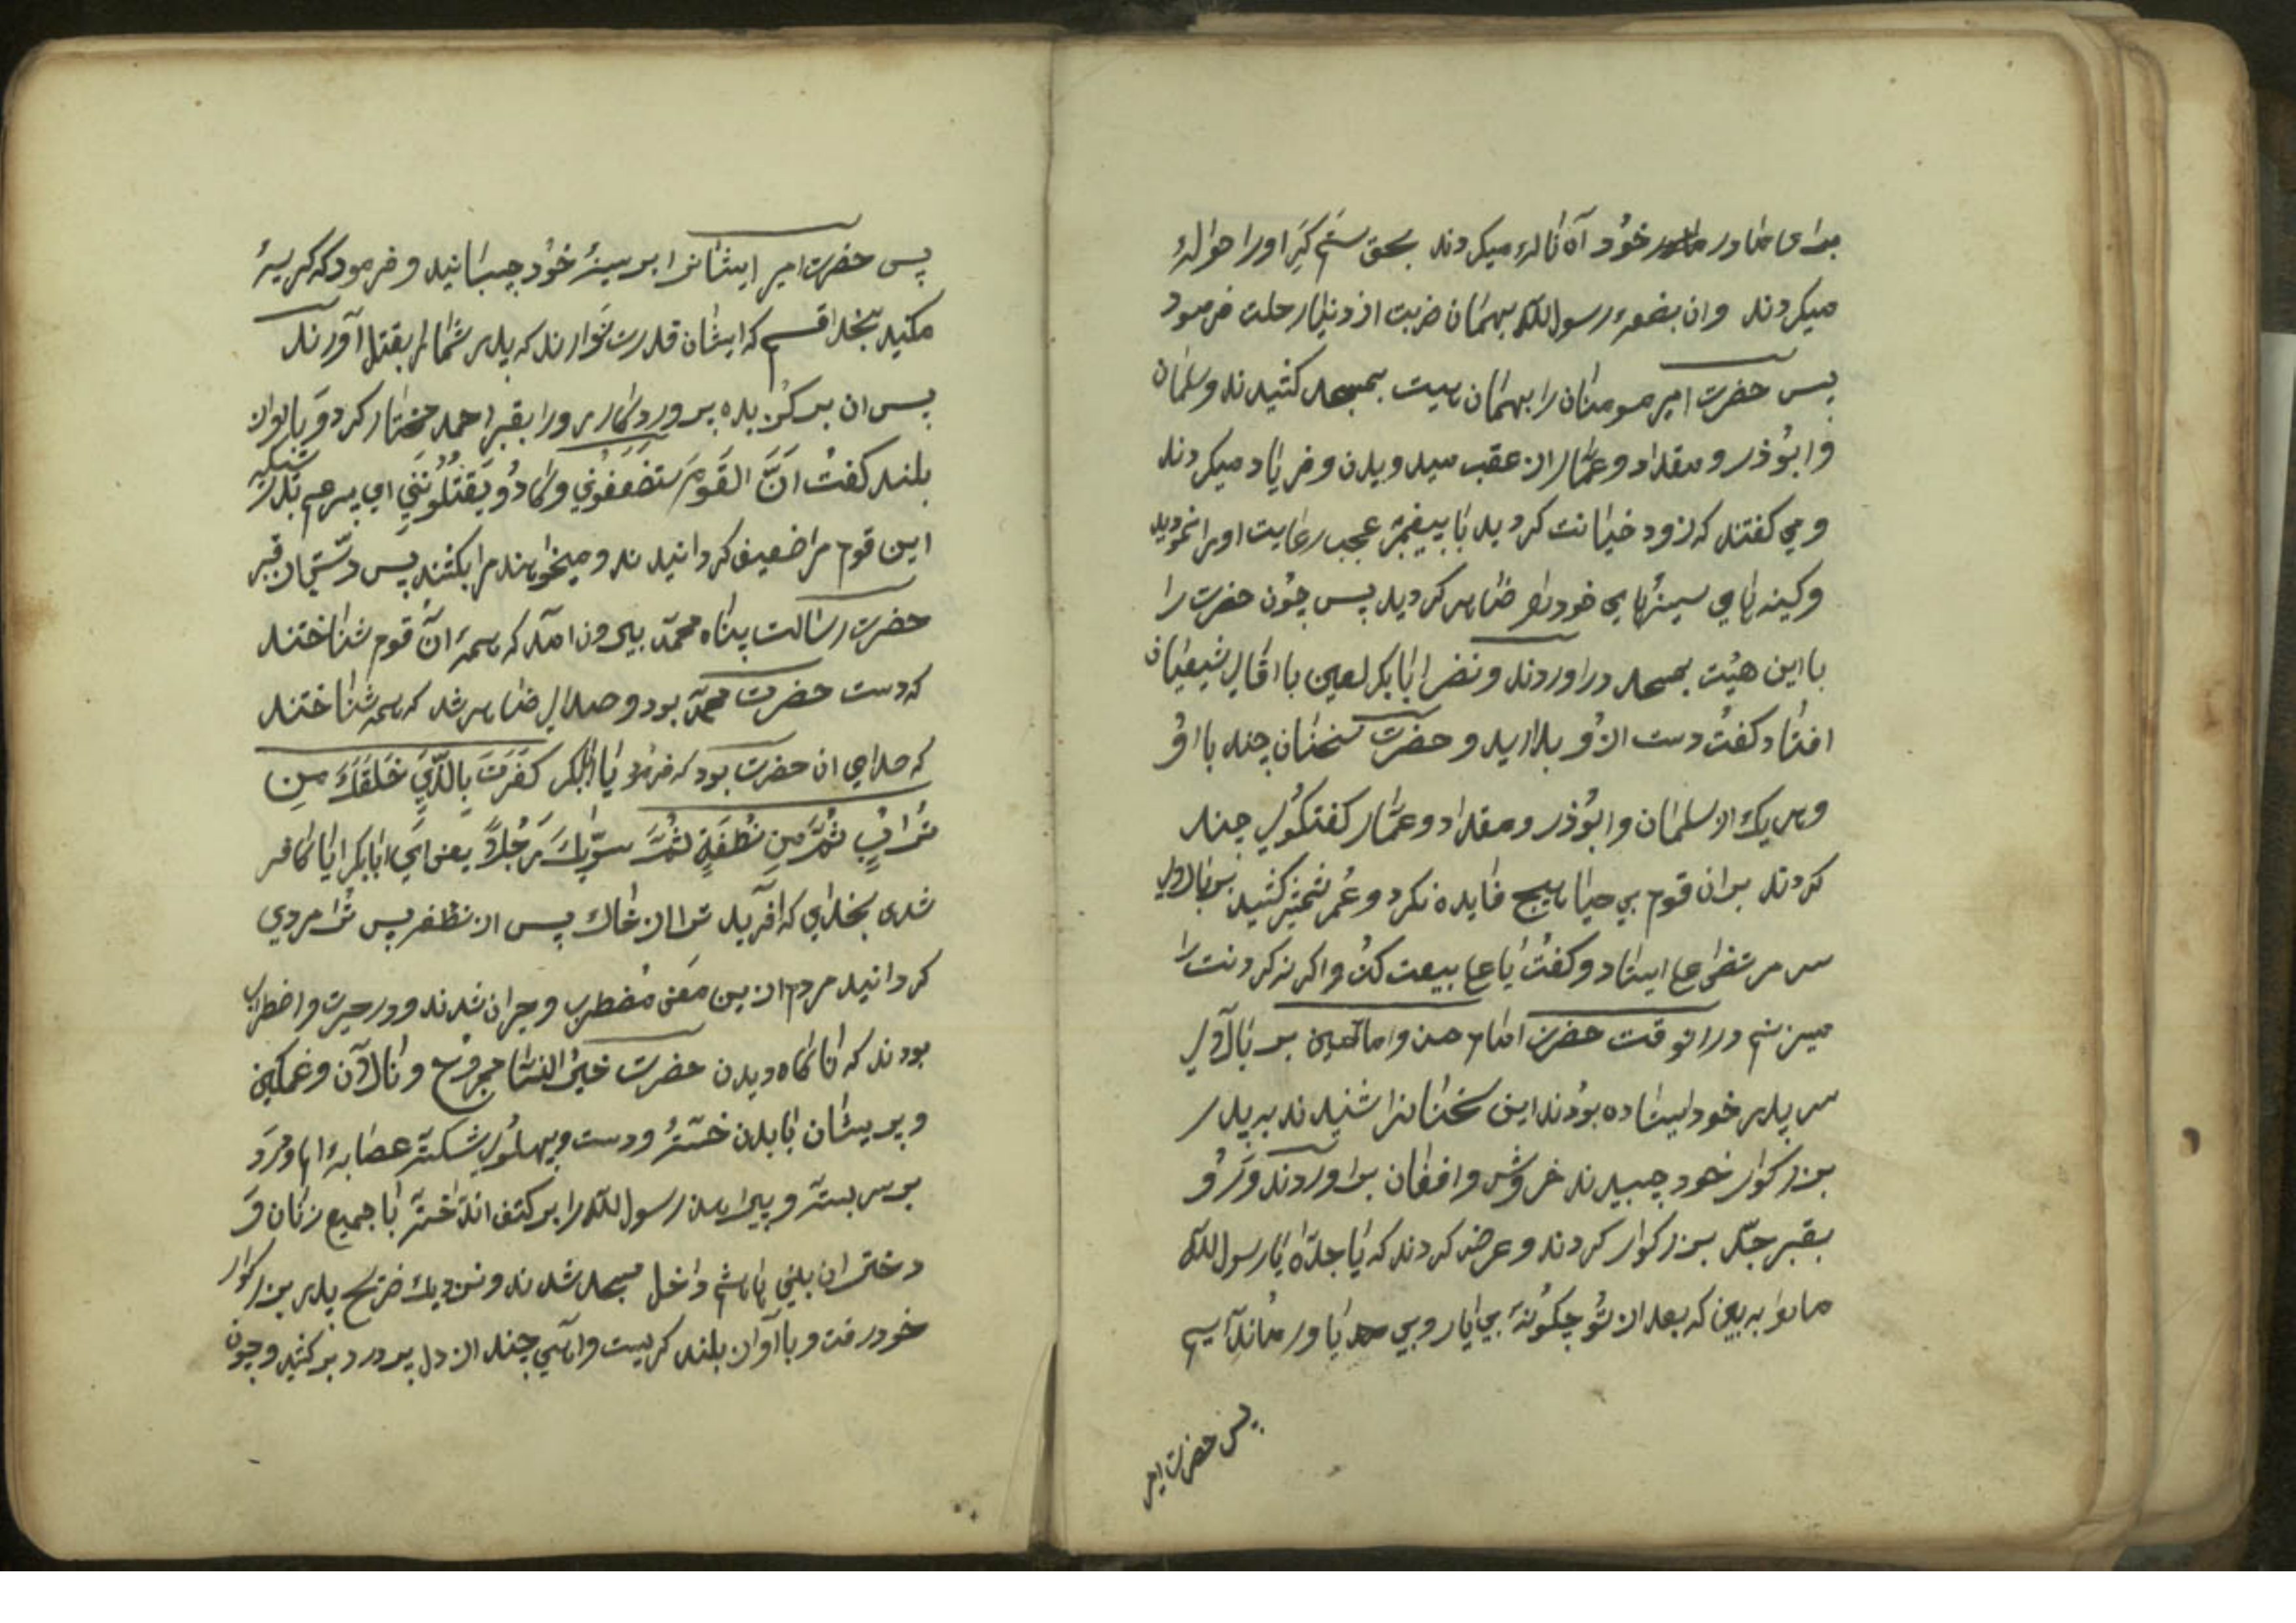 برای مادر خود آه ناله میکردند بحق ستم کر او را حوالهٔ
میکردند وان بضعهٔ رسول الله بهمان ضربت از دنیا رحلت فرمود
پس حضرت امیر مومنان را بهمان هیت بمسجد کشیدند و سلمان
و ابوذر و مقداد و عمار از عقب میدویدن و فریاد میکردند
و می کفتند که زود خیانت کردید با پیغمبر عجب رعایت او را نمودید
و کینه های سینهای خود را ضاهر کردید پس چون حضرت را
با این هیئت بمسجد دراوردند و نضر ابابکر لعین با اقای شیعیان
افتاد کفت دست از و بدارید و حضرت سخنان چند با او
و هر یک از سلمان و ابوذر و مقداد و عمار کفتکوی چند
کردند بران قوم بی حیا هیچ فایده نکرد و عمر شمشیر کشید بر بالای
سر مرتضی علی ایستاد و کفت یا علی بیعت کن و اکر نه کردنت را
میزنم در انوقت حضرت امام حسن و امام حسین بر بالای
سر پدر خود ایستاده بودند این سخنانرا شنیدند به پدر
بزرکوار خود چسبیدند خروش و افغان براوردند و رو
بقبر جد بزرکوار کردند و عرض کردند که یا جداه یا رسول الله
مارا به بین که بعد از تو چکونه بی یار و بی یاور مانده ایم
پس حضرت امیر
پس حضرت امیر ایشانرا بر سینهٔ خود چسبانید و فرمود که کریهٔ
مکنید بخدا قسم که ایشان قدرت ندارند که پدر شما را بقتل آورند
پس ان بر کزیده پروردکار رو را بقبر احمد مختار کرد و با اواز
بلند کفت ان القوم ستضعفوني وکادو يقتلونني ای پسر عم بدرستیکه
این قوم مرا ضعیف کردانیدند و میخواهند مرا بکشند پس دستی از قبر
حضرت رسالت پناه محمد بیرون امد که همهٔ ان قوم شناختند
که دست حضرت محمد بود و صدای ضاهر شد که همه شناختند
که صدای ان حضرت بود که فرمود یا ابابکر کفرت بالذي خلقك من
تراب ثم من نطفة ثم سويك رجلا یعنی ای ابابکر ایا کافر
شدی بخدای که افرید ترا از خاك پس از نطفه پس ترا مردی
کردانید مردم از ین معنی مضطرب و حیران شدند و در حیرت و اضطراب
بودند که ناکاه دیدن حضرت خیر النسا مجروح و نالان و غمکین
و پریشان با بدن خسته و دست و پهلوی شکسته عصابهٔ
بر سر بسته و پیراهن رسول الله را بر کتف انداخته با جمیع زنان و
دختران بنی هاشم داخل مسجد شدند و نزدیك ضریح پدر بزرکوار
خود رفت و با آواز بلند کریست و اهی چند از دل پر درد بر کشید و چون